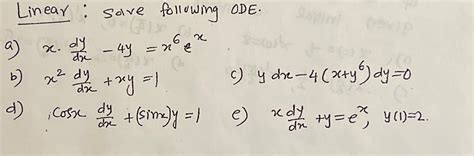 Linear : solve following ODE.
a) x. dy/dx - 4y = x⁶eˣ
b) x² dy/dx + xy = 1 c) y dx - 4(x+y⁶) dy = 0
d) cosx dy/dx + (sinx)y = 1 e) x dy/dx + y = eˣ, y(1)=2.